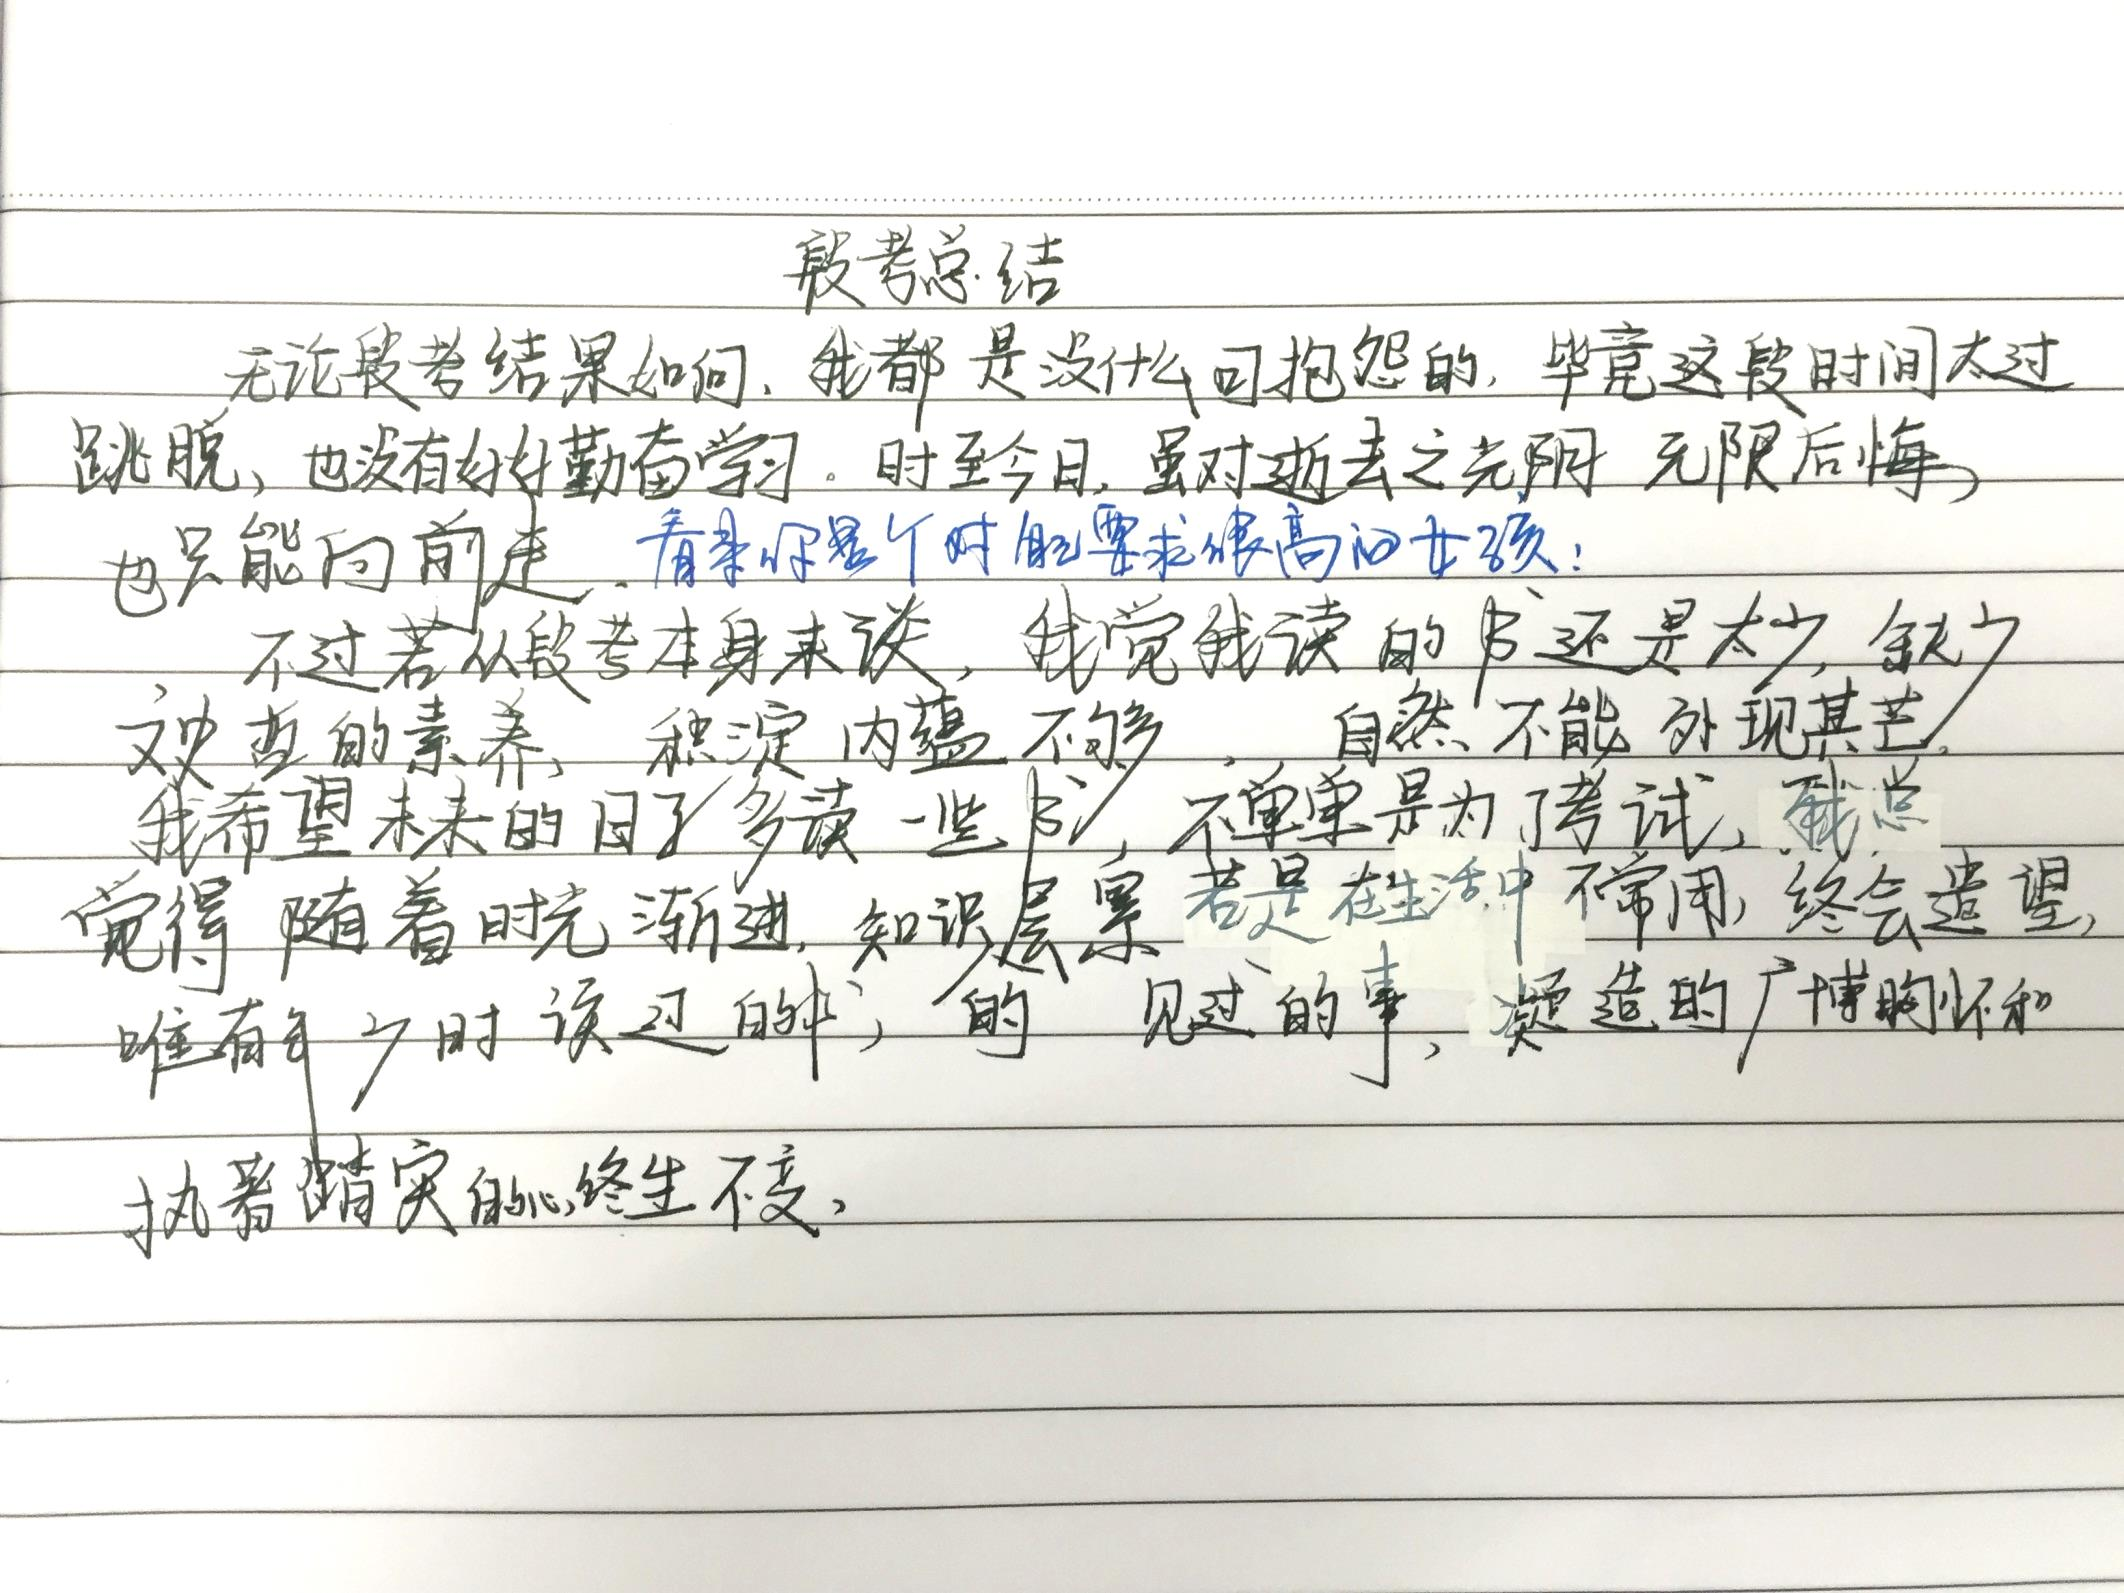 段考总结
无论段考结果如何，我都是没什么可抱怨的，毕竟这段时间太过
跳脱，也没有好好勤奋学习。时至今日，虽对逝去之光阴无限后悔，
也只能向前走。看来你是个对自己要求很高的女孩！
不过若从段考本身来谈，我觉我读的书还是太少，缺少
文史哲的素养，积淀内蕴不够多，自然不能外现其芒。
我希望未来的日子多读一些书，不单单是为了考试，我总
觉得随着时光渐进，知识层累若是在生活中不常用，终会遗望，
唯有年少时读过的书，的见过的事，凝造的广博胸怀和
执著踏实的心，终生不变，